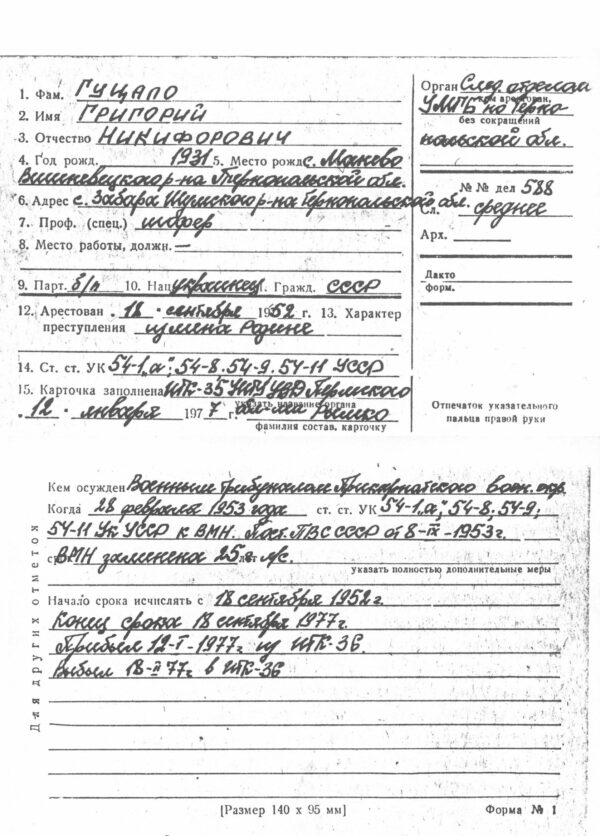 1. Фам. ГУЦАЛО
2. Имя ГРИГОРИЙ
3. Отчество НИКИФОРОВИЧ
4. Год рожд. 1931 5. Место рожд с. Манево
Вишневецкого р-на Тернопольской обл.
6. Адрес с. Забара Шумского р-на Тернопольской обл.
7. Проф. (спец.) шофер
8. Место работы, должн. —
9. Парт. б/п 10. Нац украинец 11. Гражд. СССР
12. Арестован 18 сентября 1952 г. 13. Характер
преступления измена Родине
14. Ст. ст. УК 54-1 "а", 54-8. 54-9. 54-11 УССР
15. Карточка заполнена ИТК-35 УИТУ УВД Пермского
указать название органа
12 января 1977 г. обл-ма Рышко
фамилия состав, карточку
Орган След. отделом
кем арестован,
УМГБ по Терно
без сокращений
польской обл.
№ № дел 588
Сл. среднее
Арх.
Дакто
форм.
Отпечаток указательного
пальца правой руки
Кем осужден Военным трибуналом Прикарпатского воен. окр.
Когда 28 февраля 1953 года ст. ст. УК 54-1 "а", 54-8. 54-9,
54-11 Ук УССР к ВМН. Пост. ПВС СССР от 8-IX-1953 г.
ВМН заменена 25 лет л/с.
указать полностью дополнительные меры
Начало срока исчислять с 18 сентября 1952 г.
Конец срока 18 сентября 1977 г.
Прибыл 12-I-1977 г. из ИТК-36.
Выбыл 18-II 77 г. в ИТК-36
Для других отметок
[Размер 140 х 95 мм]
Форма № 1